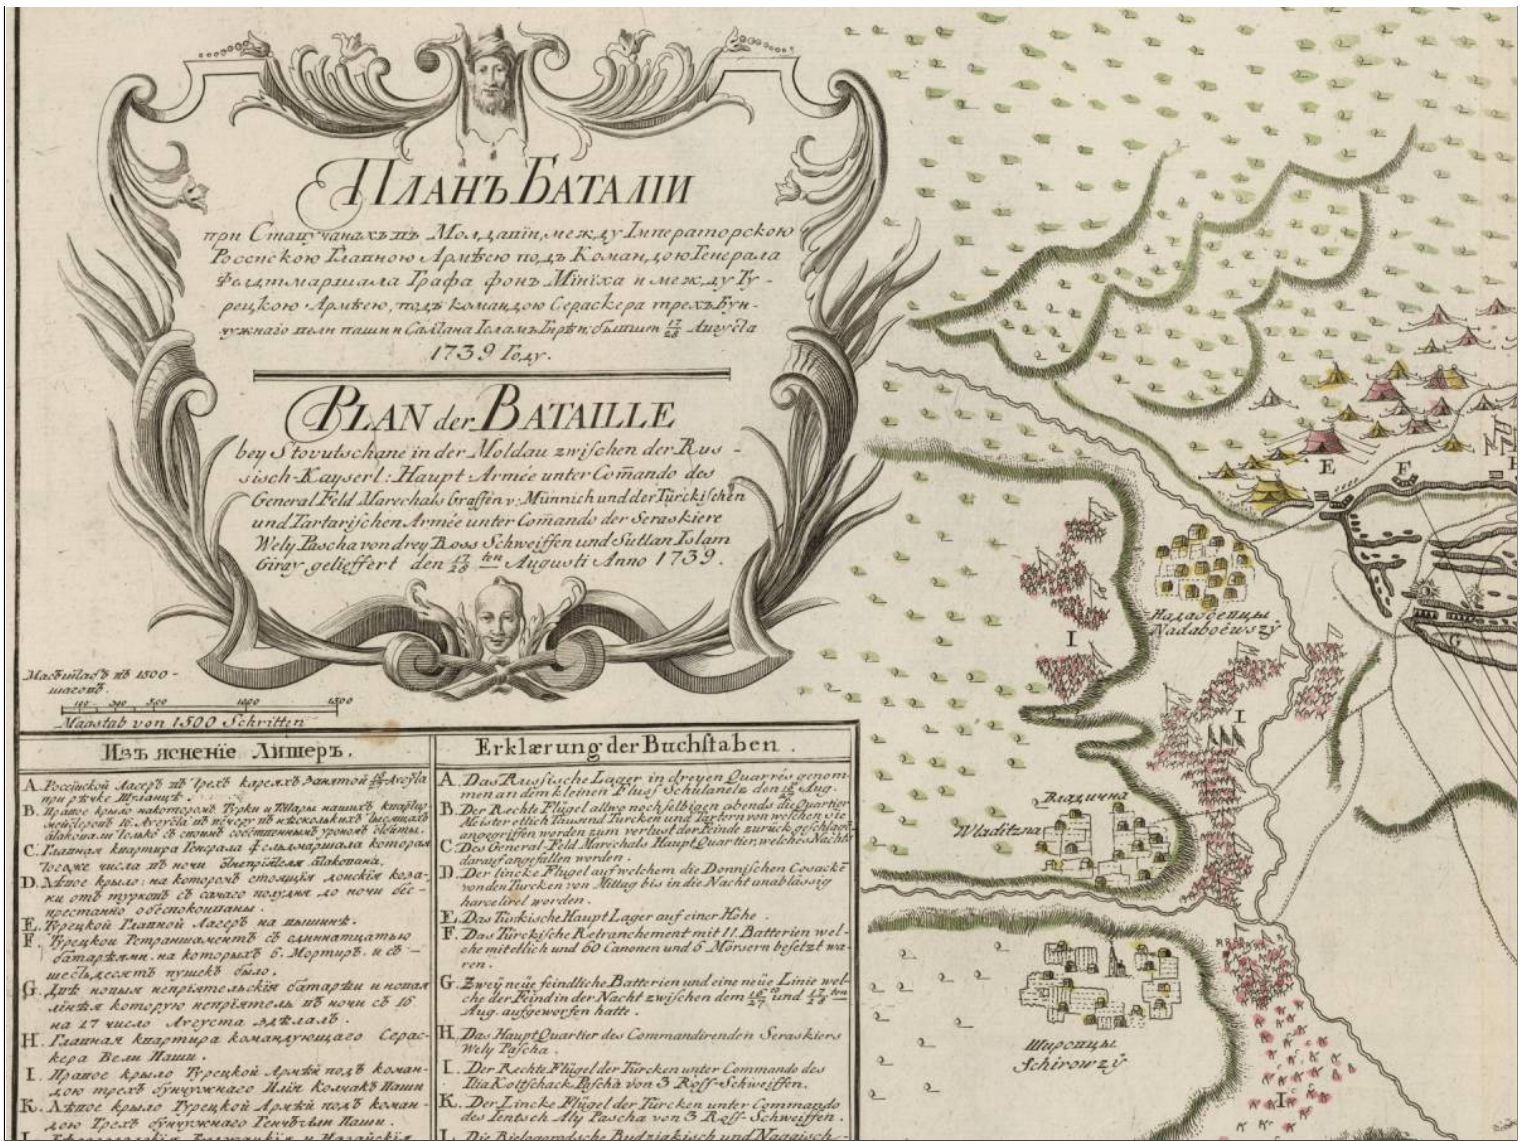 ПЛАНЪ БАТАЛIИ
при Ставучанахъ въ Молдавiи, между Iмператорскою
Россiскою Главною Армѣею подъ Командою Генерала
Фелдтмаршала Графа фонъ Мiнiха и между Ту-
рецкою Армѣею, подъ командою Сераскера трехъ Бун-
чужнаго вели паши и Салтана Iсламъ Гирѣи, бывшеи 17/28 Августа
1739 Году.
PLAN der BATAILLE
bey Stovutschane in der Moldau zwiſchen der Rus-
sisch-Kayserl: Haupt Armée unter Com̄ando des
General Feld Marechals Graffen v: Münnich und der Türckiſchen
und Tartariſchen Armée unter Com̄ando der Seraskiere
Wely Pascha von drey Ross Schweiffen und Sultan Islam
Giray gelieffert den 17/28 ten Augusti Anno 1739.
Масштабъ въ 1500-
шаговъ.
100 300 500 1000 1500
Maastab von 1500 Schritten
Изъясненiе Литеръ.
A. Россiйской Лагеръ въ трехъ кареяхъ занятой Августа
при рѣчке Шуланцѣ.
B. Правое крыло накоторомъ Турки и Татары нашихъ квартир
мейстеровъ 16 Августа въ вечеру въ нѣсколькихъ тысящахъ
атаковали только съ своимъ собственнымъ урономъ отбиты.
C. Главная квартира Генерала Фелдмаршала которая
тогоже числа въ ночи отнепрiятеля атакована.
D. Лѣвое крыло: на которомъ стоящiя донскiя коза-
ки отъ турковъ съ самаго полудни до ночи без-
престанно обезпокоиваны.
E. Турецкой Главной Лагеръ на вышинѣ.
F. Турецкои Ретраншаментъ съ единнатцатью
батарѣями, на которыхъ 6. Мортиръ, и съ-
шестьдесятъ пушекъ было.
G. Двѣ новыя непрiятельскiя батарѣи и новая
лiнѣя которую непрiятель въ ночи съ 16
на 17 число Августа здѣлалъ.
H. Главная квартира командующаго Серас-
кера Вели Паши.
I. Правое крыло Турецкой Армѣи подъ коман-
дою трехъ бунчужнаго Илiя Колчакъ Паши
K. Лѣвое крыло Турецкой Армѣи подъ коман-
дою Трехъ бунчужнаго Генчъ Али Паши.
Erklærung der Buchſtaben.
A. Das Ruſſiſche Lager in dreyen Quarrés genom-
men an dem kleinen Fluſs Schulanetz den 16/27 Aug.
B. Der Rechte Flügel allwo noch ſelbigen abends die Quartier
Meister etlich Tausend Turcken und Tartern von welchen sie
angegriffen worden zum verlust der Feinde zurück geschlagen
C. Des General-Feld Marechals Haupt Quartier, welches Nachts
darauf angefallen worden.
D. Der lincke Flügel auf welchem die Donniſchen Cosacke
von den Turcken von Mittag bis in die Nacht unabläſsig
harcelirel worden.
E. Das Turkische Haupt Lager auf einer Höhe.
F. Das Türckiſche Retranchement mit 11. Batterien wel-
che mit etlich und 60 Canonen und 6 Mörsern beſetzt wa-
ren.
G. Zwey neüe feindliche Batterien und eine neüe Linie wel-
che der Feind in der Nacht zwiſchen dem 16/27 und 17/28 ten
Aug. aufgeworfen hatte.
H. Das Haupt Quartier des Commandirenden Seraskiers
Wely Paſcha.
I. Der Rechte Flügel der Türcken unter Commando des
Ilia Kottſchack Paſcha von 3 Roſſ-Schweiffen.
K. Der Lincke Flügel der Türcken unter Commando
des Ientsch Aly Pascha von 3 Roſſ-Schweiffen.
L. Die Bielogorodsche Budziakisch und Nagaisch-
E
F
G
I
Надабоевцы
Nadaboëwszÿ
I
Владична
Wladitzna
Шировцы
Schirowzÿ
I